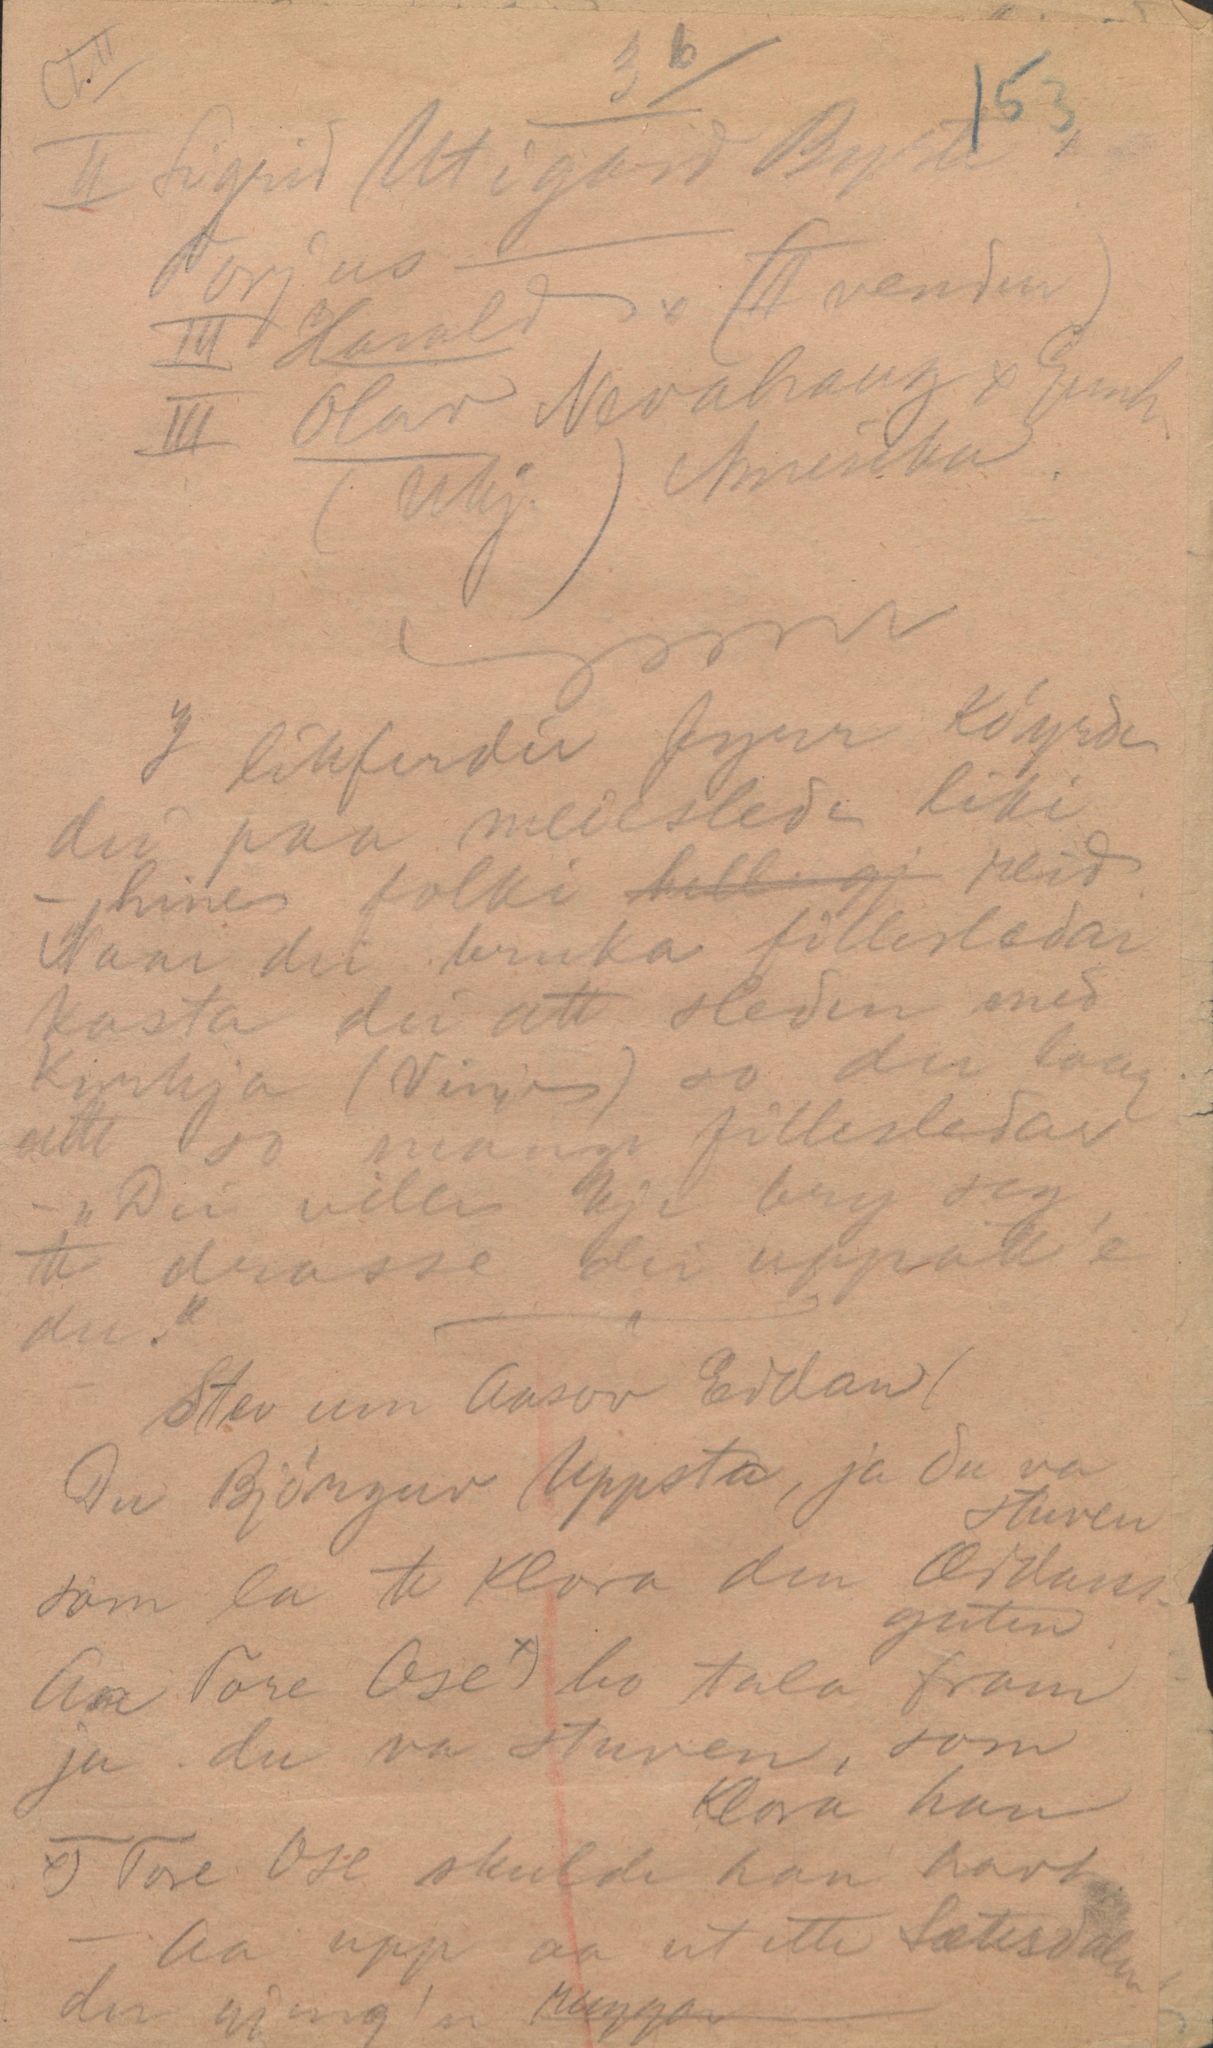 3 b
153
II Sigrid Utigard Bystø
Torjus
III Harald x (II venden)
III Olav Nevahaug x Gunh.
(Ukj.) Amerika
I likferdir fyrr köyrde
dei paa meiesleda liki
- hine folki reid
Naar dei bruka fillesledar
kasta dei att sleden med
Kyrkja (Vinje) so der laag
att so mange fillesledar
- "Dei ville kje bry seg
te drasse dei uppatt'e
der."
Stev um Aasov Eiddan
Du Björguv Uppsta, ja du va
sturen
som la te Klora den Eiddans-
guten
Aa Tore Ose x) ho tala fram
ja du va sturen, som
Klora han
x) Tore Ose skulde han havt
- Aa upp aa ut ette Sætesdalen
der gjeng'n ruggar